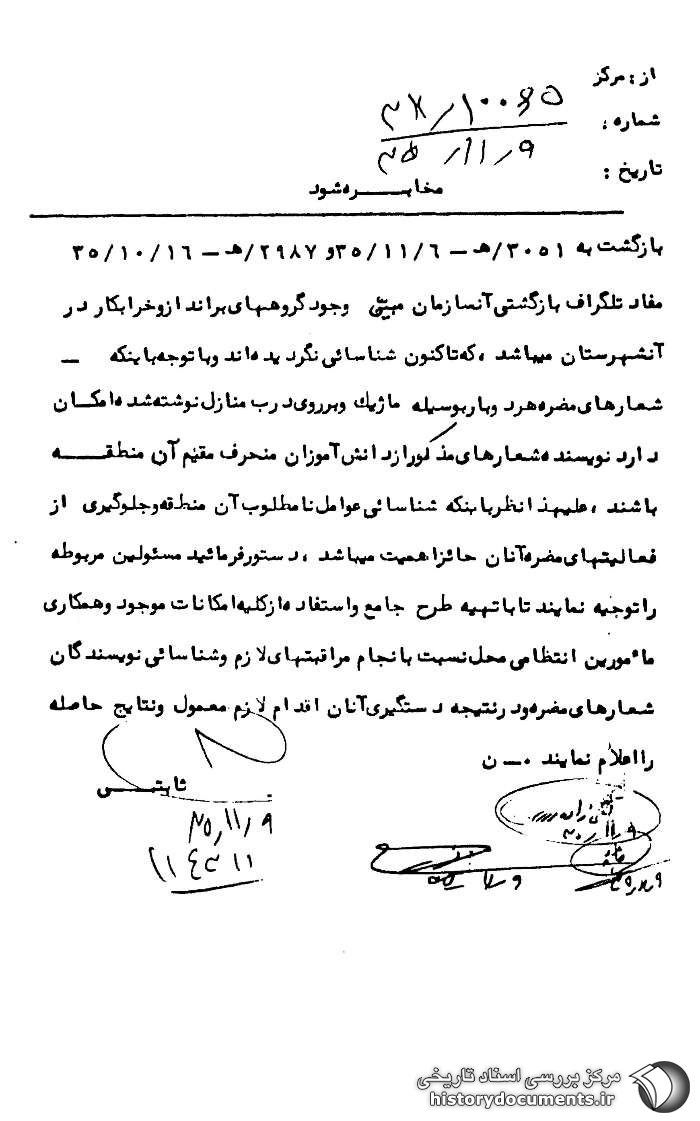 از : مرکز
شماره :
تاریخ : ۳۵/۱۱/۹
مخابـــره شود
بازگشت به ۳۰۵۱/هـ – ۳۵/۱۱/۶ و ۲۹۸۷/هـ – ۳۵/۱۰/۱۶
مفاد تلگراف بازگشتی آنسازمان مبینی وجود گروههای برانداز و خرابکار در
آنشهرستان میباشد ، که تاکنون شناسائی نگردیده‌اند و با توجه باینکه –
شعارهای مضره هرد و بار بوسیله ماژیک و برروی درب منازل نوشته شده امکان
دارد نویسنده شعارهای مذکور از دانش آموزان منحرف مقیم آن منطقـــه
باشند ، علیهذا نظر باینکه شناسائی عوامل نامطلوب آن منطقه و جلوگیری از
فعالیتهای مضره آنان حائز اهمیت میباشد ، دستور فرمائید مسئولین مربوطه
را توجیه نمایند تا با تهیه طرح جامع و استفاده از کلیه امکانات موجود و همکاری
مأمورین انتظامی محل نسبت بانجام مراقبتهای لازم و شناسائی نویسندگان
شعارهای مضره و در نتیجه دستگیری آنان اقدام لازم معمول و نتایج حاصله
را اعلام نمایند . – ن
ثابتـــی
۳۵/۱۱/۹
مرکز بررسی اسناد تاریخی
historydocuments.ir